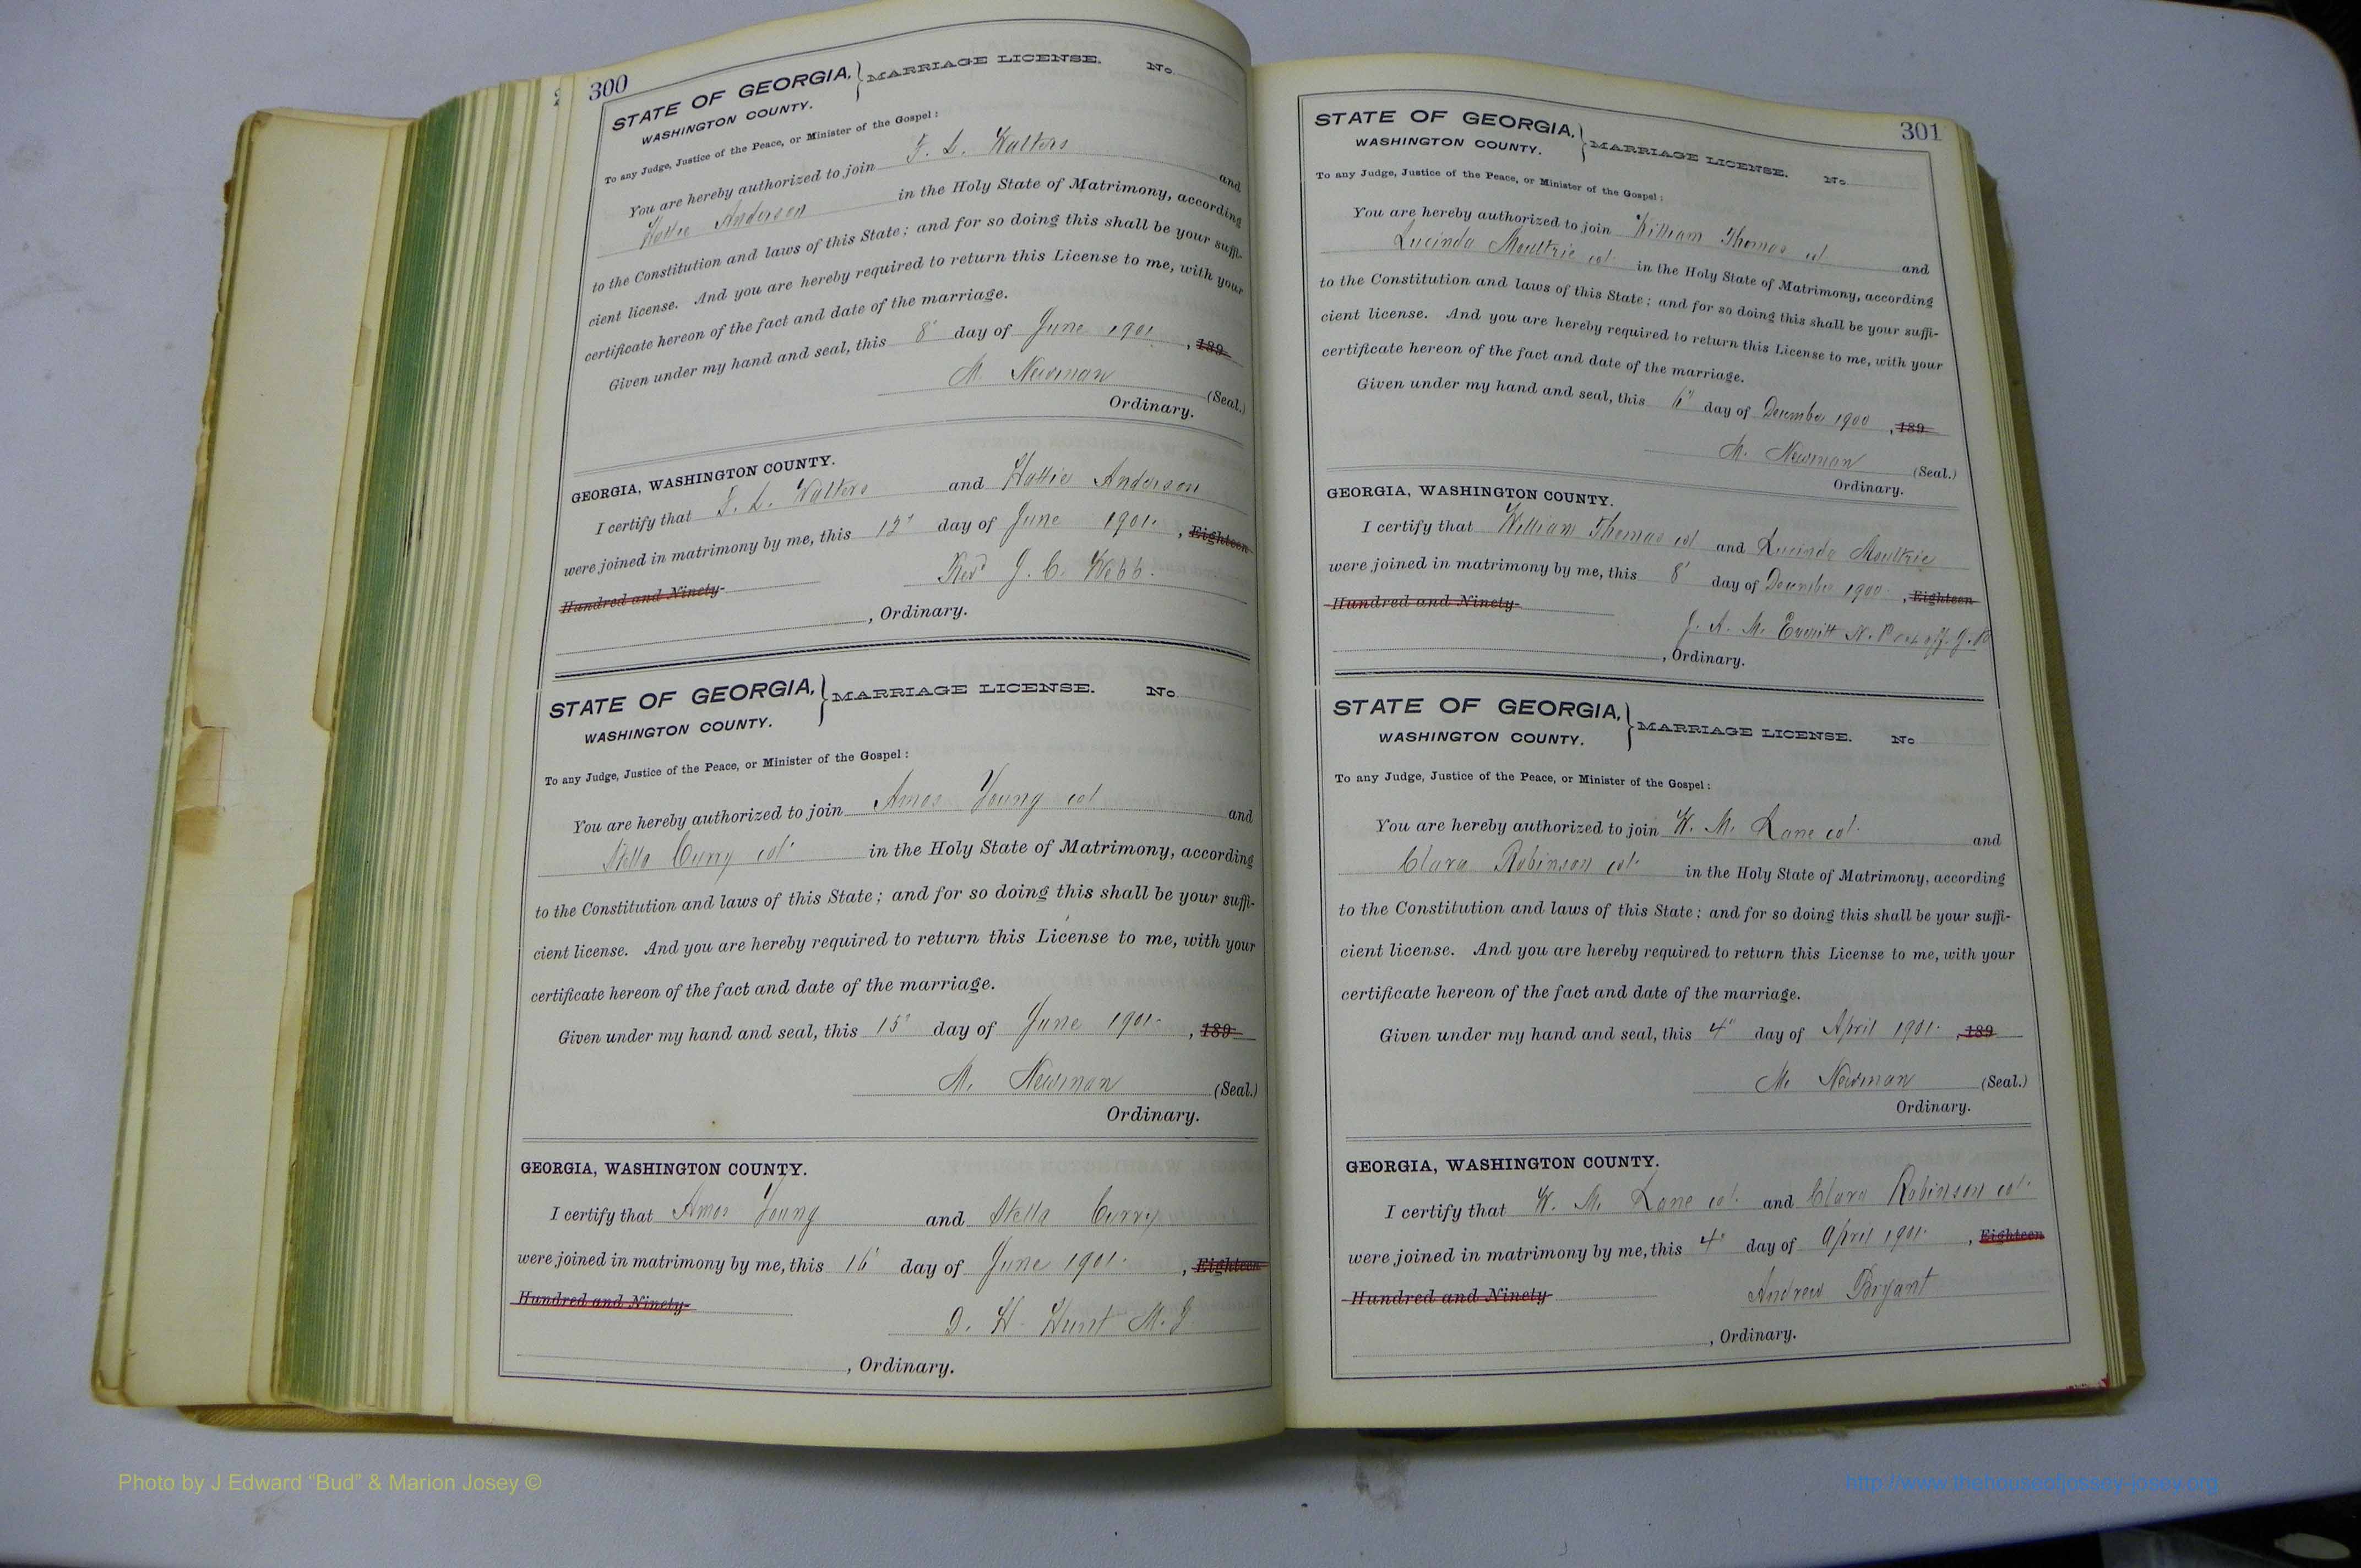 300
STATE OF GEORGIA, } MARRIAGE LICENSE. No
WASHINGTON COUNTY.
To any Judge, Justice of the Peace, or Minister of the Gospel:
You are hereby authorized to join F. L. Walters and
Hattie Anderson in the Holy State of Matrimony, according
to the Constitution and laws of this State; and for so doing this shall be your suffi-
cient license. And you are hereby required to return this License to me, with your
certificate hereon of the fact and date of the marriage.
Given under my hand and seal, this 8" day of June 1901, 189
M. Newman (Seal.)
Ordinary.
GEORGIA, WASHINGTON COUNTY.
I certify that F. L. Walters and Hattie Anderson
were joined in matrimony by me, this 12" day of June 1901., Eighteen
Hundred and Ninety- Revd J. C. Webb.
, Ordinary.
STATE OF GEORGIA, } MARRIAGE LICENSE. No
WASHINGTON COUNTY.
To any Judge, Justice of the Peace, or Minister of the Gospel:
You are hereby authorized to join Amos Young col and
Stella Curry col in the Holy State of Matrimony, according
to the Constitution and laws of this State; and for so doing this shall be your suffi-
cient license. And you are hereby required to return this License to me, with your
certificate hereon of the fact and date of the marriage.
Given under my hand and seal, this 15" day of June 1901., 189-
M. Newman (Seal.)
Ordinary.
GEORGIA, WASHINGTON COUNTY.
I certify that Amos Young and Stella Curry
were joined in matrimony by me, this 16" day of June 1901., Eighteen
Hundred and Ninety-
D. H. Hunt M. G.
, Ordinary.
301
STATE OF GEORGIA, } MARRIAGE LICENSE. No
WASHINGTON COUNTY.
To any Judge, Justice of the Peace, or Minister of the Gospel:
You are hereby authorized to join William Thomas col and
Lucinda Moultrie col in the Holy State of Matrimony, according
to the Constitution and laws of this State; and for so doing this shall be your suffi-
cient license. And you are hereby required to return this License to me, with your
certificate hereon of the fact and date of the marriage.
Given under my hand and seal, this 6" day of December 1900, 189
M. Newman (Seal.)
Ordinary.
GEORGIA, WASHINGTON COUNTY.
I certify that William Thomas col and Lucinda Moultrie
were joined in matrimony by me, this 8" day of December 1900, Eighteen
Hundred and Ninety-
J. A. M. Everitt N. P.
, Ordinary.
STATE OF GEORGIA, } MARRIAGE LICENSE. No
WASHINGTON COUNTY.
To any Judge, Justice of the Peace, or Minister of the Gospel:
You are hereby authorized to join W. M. Lane col. and
Clara Robinson col. in the Holy State of Matrimony, according
to the Constitution and laws of this State; and for so doing this shall be your suffi-
cient license. And you are hereby required to return this License to me, with your
certificate hereon of the fact and date of the marriage.
Given under my hand and seal, this 4" day of April 1901., 189
M. Newman (Seal.)
Ordinary.
GEORGIA, WASHINGTON COUNTY.
I certify that W. M. Lane col. and Clara Robinson col.
were joined in matrimony by me, this 4" day of April 1901., Eighteen
Hundred and Ninety Andrew Bryant
, Ordinary.
Photo by J Edward “Bud” & Marion Josey ©
http://www.thehouseofjossey-josey.org